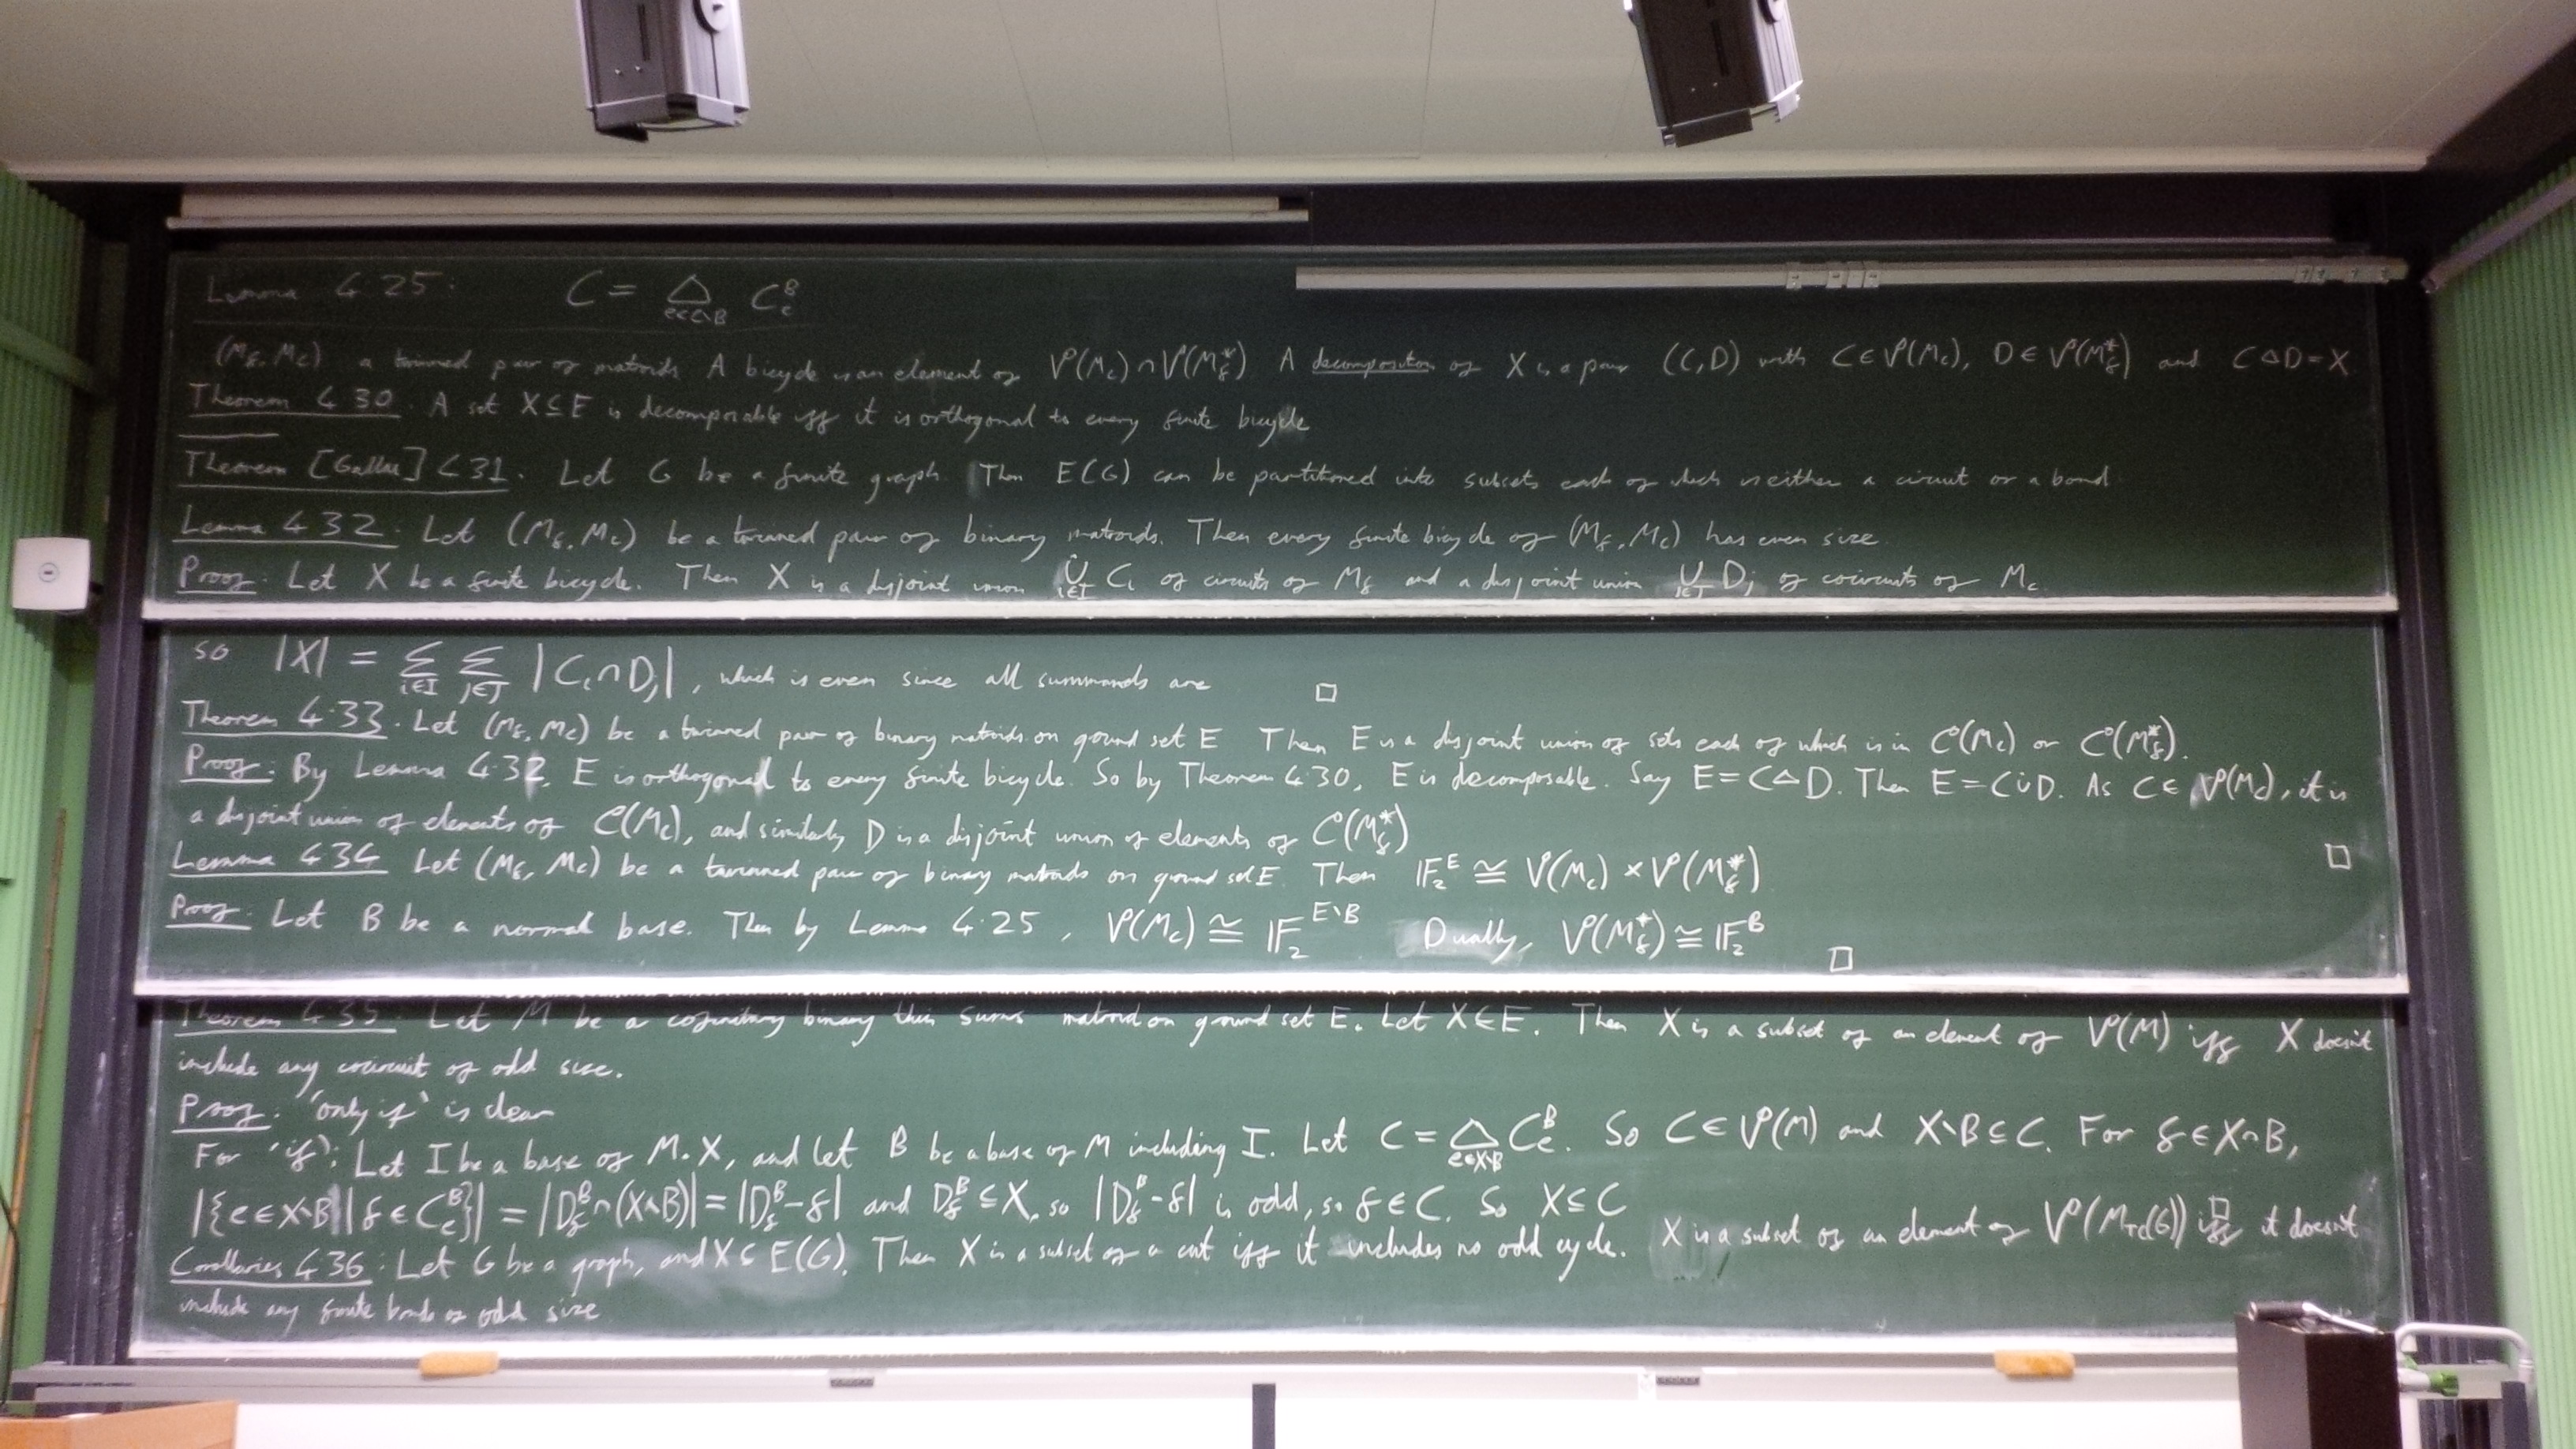 Lemma 4.25: C = △_{e∈C\B} C_e^B
(M_f, M_c) a twinned pair of matroids. A bicycle is an element of 𝒱(M_c)∩𝒱(M_f^*). A decomposition of X is a pair (C,D) with C∈𝒱(M_c), D∈𝒱(M_f^*) and C△D=X.
Theorem 4.30. A set X⊆E is decomposable iff it is orthogonal to every finite bicycle
Theorem [Gallai] 4.31. Let G be a finite graph. Then E(G) can be partitioned into subsets each of which is either a circuit or a bond.
Lemma 4.32: Let (M_f, M_c) be a twinned pair of binary matroids. Then every finite bicycle of (M_f, M_c) has even size.
Proof: Let X be a finite bicycle. Then X is a disjoint union ⋃̇_{i∈I} C_i of circuits of M_f and a disjoint union ⋃̇_{j∈J} D_j of cocircuits of M_c
so |X| = Σ_{i∈I} Σ_{j∈J} |C_i∩D_j|, which is even since all summands are □
Theorem 4.33. Let (M_f, M_c) be a twinned pair of binary matroids on ground set E. Then E is a disjoint union of sets each of which is in 𝒞(M_c) or 𝒞(M_f^*).
Proof: By Lemma 4.32, E is orthogonal to every finite bicycle. So by Theorem 4.30, E is decomposable. Say E=C△D. Then E=C∪̇D. As C∈𝒱(M_c), it is
a disjoint union of elements of 𝒞(M_c), and similarly D is a disjoint union of elements of 𝒞(M_f^*) □
Lemma 4.34 Let (M_f, M_c) be a twinned pair of binary matroids on ground set E. Then 𝔽_2^E ≅ 𝒱(M_c) × 𝒱(M_f^*)
Proof: Let B be a normal base. Then by Lemma 4.25, 𝒱(M_c) ≅ 𝔽_2^{E\B} Dually, 𝒱(M_f^*) ≅ 𝔽_2^B □
Theorem 4.35. Let M be a cofinitary binary thin sums matroid on ground set E. Let X⊆E. Then X is a subset of an element of 𝒱(M) iff X doesn't
include any cocircuit of odd size.
Proof: 'only if' is clear
For 'if': Let I be a base of M.X, and let B be a base of M including I. Let C = △_{e∈X\B} C_e^B. So C∈𝒱(M) and X\B⊆C. For f∈X∩B,
|{e∈X\B | f∈C_e^B}| = |D_f^B∩(X\B)| = |D_f^B-f| and D_f^B⊆X, so |D_f^B-f| is odd, so f∈C. So X⊆C □
Corollaries 4.36: Let G be a graph, and X⊆E(G). Then X is a subset of a cut iff it includes no odd cycle. X is a subset of an element of 𝒱(M_{TC}(G)) iff it doesn't
include any finite bond of odd size